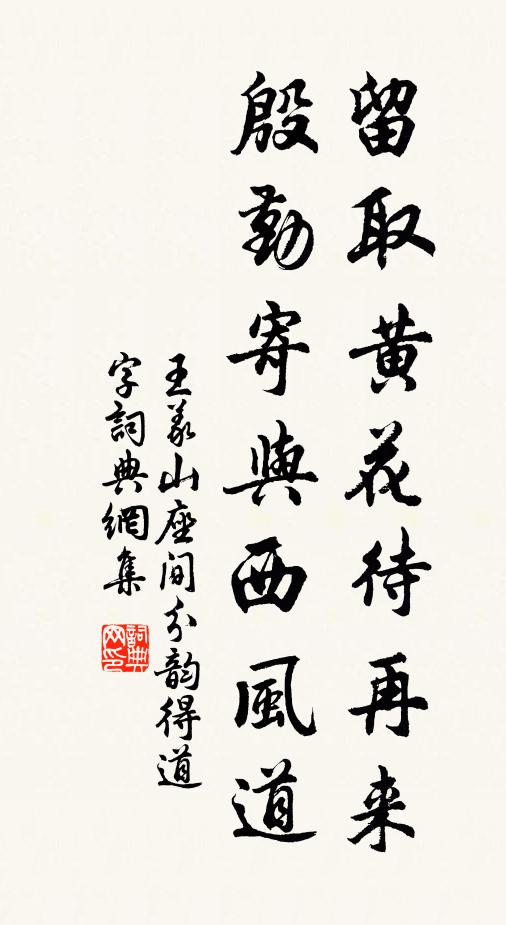 留取黄花待再来
殷勤寄與西風道
王義山座间分韵得道
字詞典網集
詞典网印